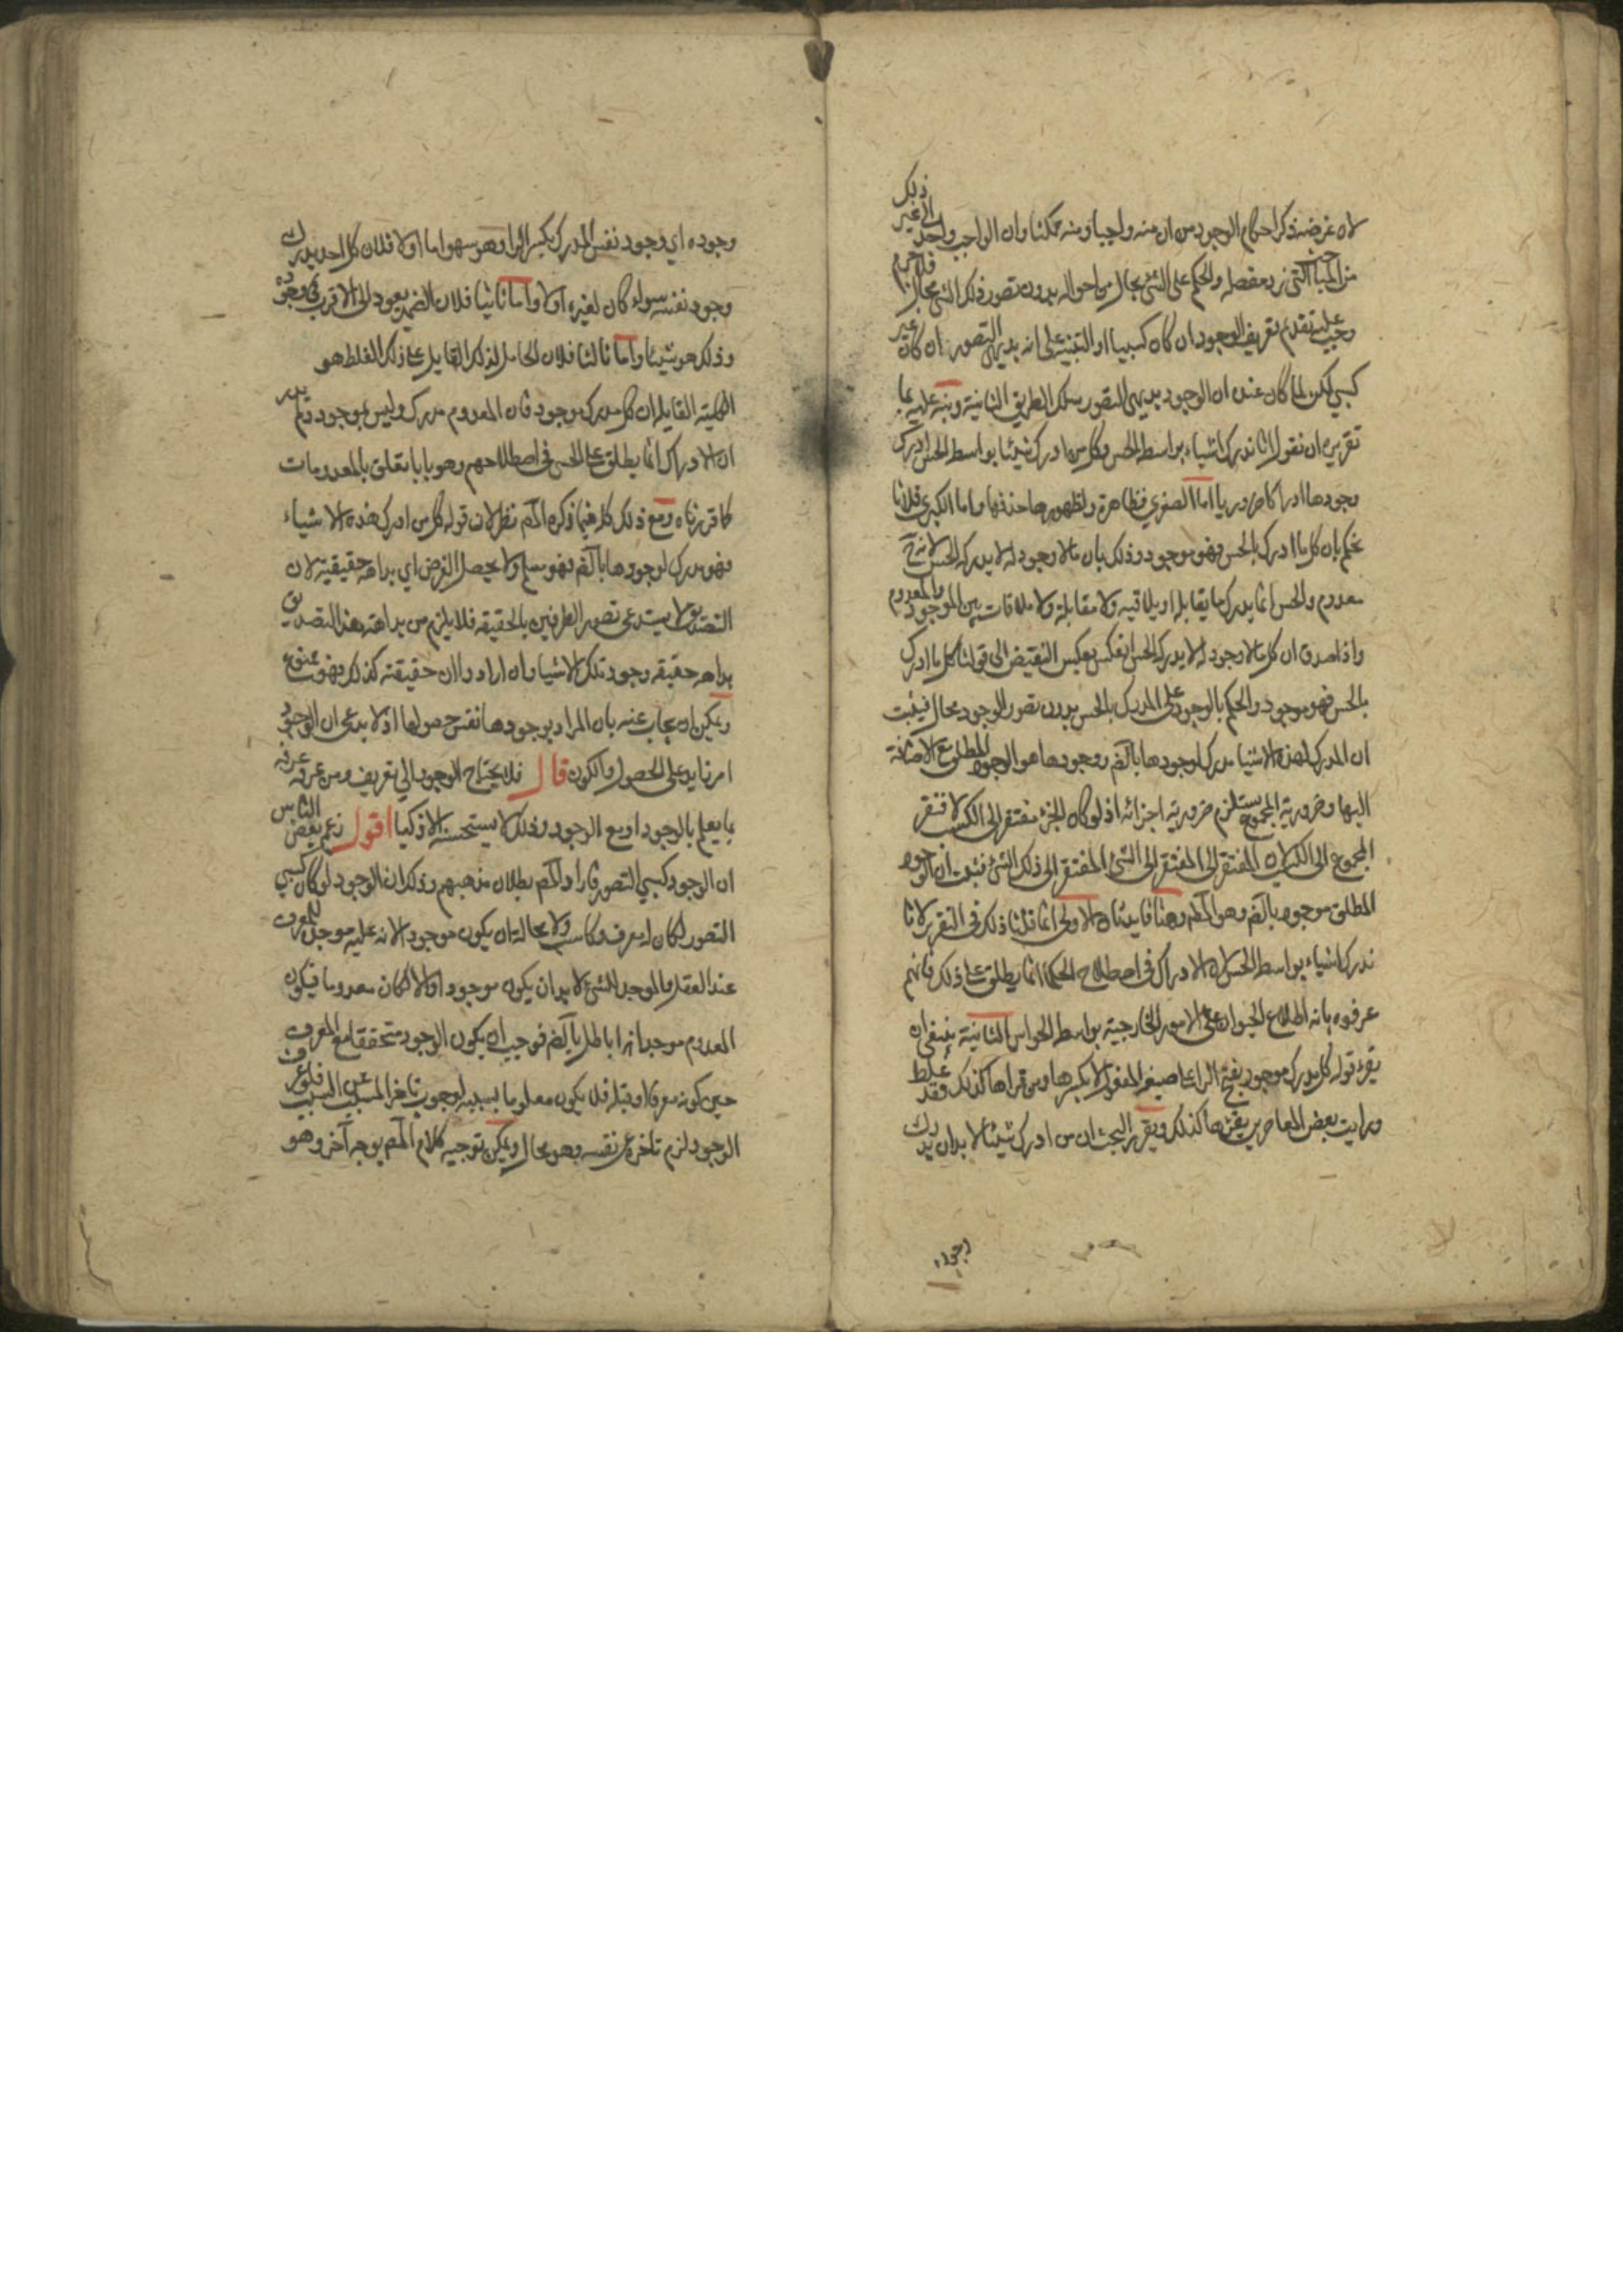 لان غرضه ذكر احكام الوجود من ان منه واجبا ومنه ممكنا وان الواجب واحد الى غير ذلك
من المباحث التي نرد مفصله والحكم على الشئ بحال من احواله بدون تصور ذلك الشئ محال فلا جرم
وجب عليه تقديم تعريف الوجود ان كان كسبيا او التنبيه على انه بديهي التصور ان كان غير
كسبي لكن لما كان عنده ان الوجود بديهي التصور سلك الطريق الثانية ونبه عليه بما
تقريره ان نقول لانا ندرك اشياء بواسطة الحس وكل من ادرك شيئا بواسطة الحس ادرك
وجودها ادراكا ضروريا اما الصغرى فظاهرة ولظهورها حذفها واما الكبرى فلانا
نحكم بان كل ما ادرك بالحس فهو موجود وذلك بان ما لا وجود له لا يدركه الحس لانه ح
معدوم والحس انما يدرك ما يقابله او يلاقيه ولا مقابلة ولا ملاقات بين الموجود والمعدوم
واذا صدق ان كل ما لا وجود له لا يدركه الحس انعكس بعكس النقيض الى قولنا كل ما ادرك
بالحس فهو موجود والحكم بالوجود على المدرك بالحس بدون تصور الوجود محال فيثبت
ان المدرك لهذه الاشيا مدرك لوجودها بالضم ووجودها هو الوجود المطلق مع الاضافة
اليها وضرورية المجموع يستلزم ضرورية اجزائه اذ لو كان الجزء مفتقر الى الكسب لافتقر
المجموع الى الكسب لان المفتقر الى المفتقر الى الشئ المفتقر الى ذلك الشئ فثبت ان الوجود
المطلق موجود بالضم وهو المطم وهنا فايدتان الاولى انما قلنا ذلك في التقرير لانا
ندرك اشياء بواسطة الحس لان الادراك في اصطلاح الحكما انما يطلق على ذلك فانهم
عرفوه بانه اطلاع الحيوان على الامور الخارجية بواسطة الحواس الثانية ينبغي ان
يقرء قوله كل مدرك موجود بفتح الرا على صيغة المفعول لا بكسرها ومن قراها كذلك فقد غلط
ورايت بعض المعاصرين يقرها كذلك ويقرر البحث ان من ادرك شيئا لا بد ان يدرك
وجوده اي وجود نفس المدرك بكسر الرا وهو سهو اما اولا فلان كل احد يدرك
وجود نفسه سواء كان لغيره اولا واما ثانيا فلان الضمير يعود الى الاقرب في وجوده
وذلك هو شيئا واما ثالثا فلان الحامل لذلك القايل على ذلك الغلط هو
الكلية القايلة ان كل مدرك موجود فان المعدوم مدرك وليس بموجود ولم يدر
ان الادراك انما يطلق على الحس في اصطلاحهم وهو يابا تعلق بالمعدومات
كما قررناه ومع ذلك كله فيما ذكره المص نظر لان قوله كل من ادرك هذه الاشياء
فهو مدرك لوجودها بالضم فهو مسلم ولا يحصل الغرض اي بداهة حقيقية لان
التصديق لا يستدعي تصور الطرفين بالحقيقه فلا يلزم من بداهة هذا التصديق
بداهة حقيقه وجود تلك الاشيا وان اراد وان حقيقته كذلك فهو ممنوع
ويمكن ان يجاب عنه بان المراد بوجودها نفس حصولها اذ لا يدعى ان الوجود
امر زايد على الحصول والكون قال فلا يحتاج الوجود الى تعريف ومن عرفه عرفه
بما يعلم بالوجود او مع الوجود وذلك لا يستحسنه الاذكيا اقول زعم بعض الناس
ان الوجود كسبي التصور فاراد المص بطلان مذهبهم وذكر ان الوجود لو كان كسبي
التصور لكان له معرف وكاسب ولا محالة ان يكون موجود الانه عليه موجدة للمعرف
عند العقل والموجد للشئ لا بد ان يكون موجودا والا لكان معدوما فيكون
المعدوم موجدا هذا باطل بالضم فوجب ان يكون الوجود متحققا مع المعرف
حين كونه معرفا او قبله فلا يكون معلوما بسببه لوجوب تاخر المسبب عن السبب فلو عرف
الوجود لزم تاخره عن نفسه وهو محال ويمكن توجيه كلام المص بوجه آخر وهو